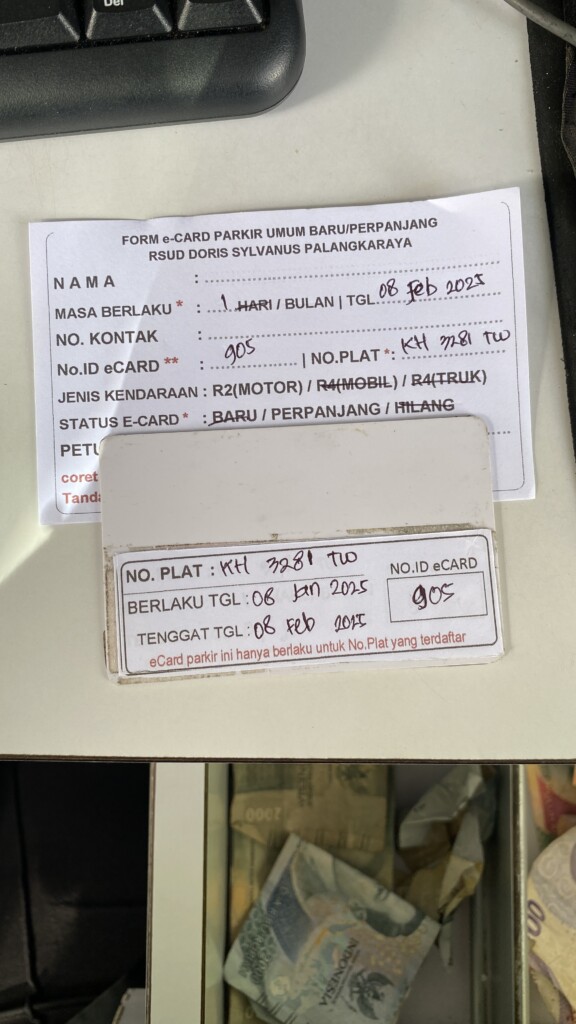 Del
FORM e-CARD PARKIR UMUM BARU/PERPANJANG
RSUD DORIS SYLVANUS PALANGKARAYA
NAMA :
MASA BERLAKU * : 1 HARI / BULAN | TGL. 08 feb 2025
NO. KONTAK :
No.ID eCARD ** : 905 | NO.PLAT *: KH 3281 TW
JENIS KENDARAAN : R2(MOTOR) / R4(MOBIL) / R4(TRUK)
STATUS E-CARD * : BARU / PERPANJANG / HILANG
PETU
coret
Tanda
NO. PLAT : KH 3281 TW
NO.ID eCARD
BERLAKU TGL : 08 Jan 2025
905
TENGGAT TGL : 08 Feb 2025
eCard parkir ini hanya berlaku untuk No.Plat yang terdaftar
1000
INDONESIA